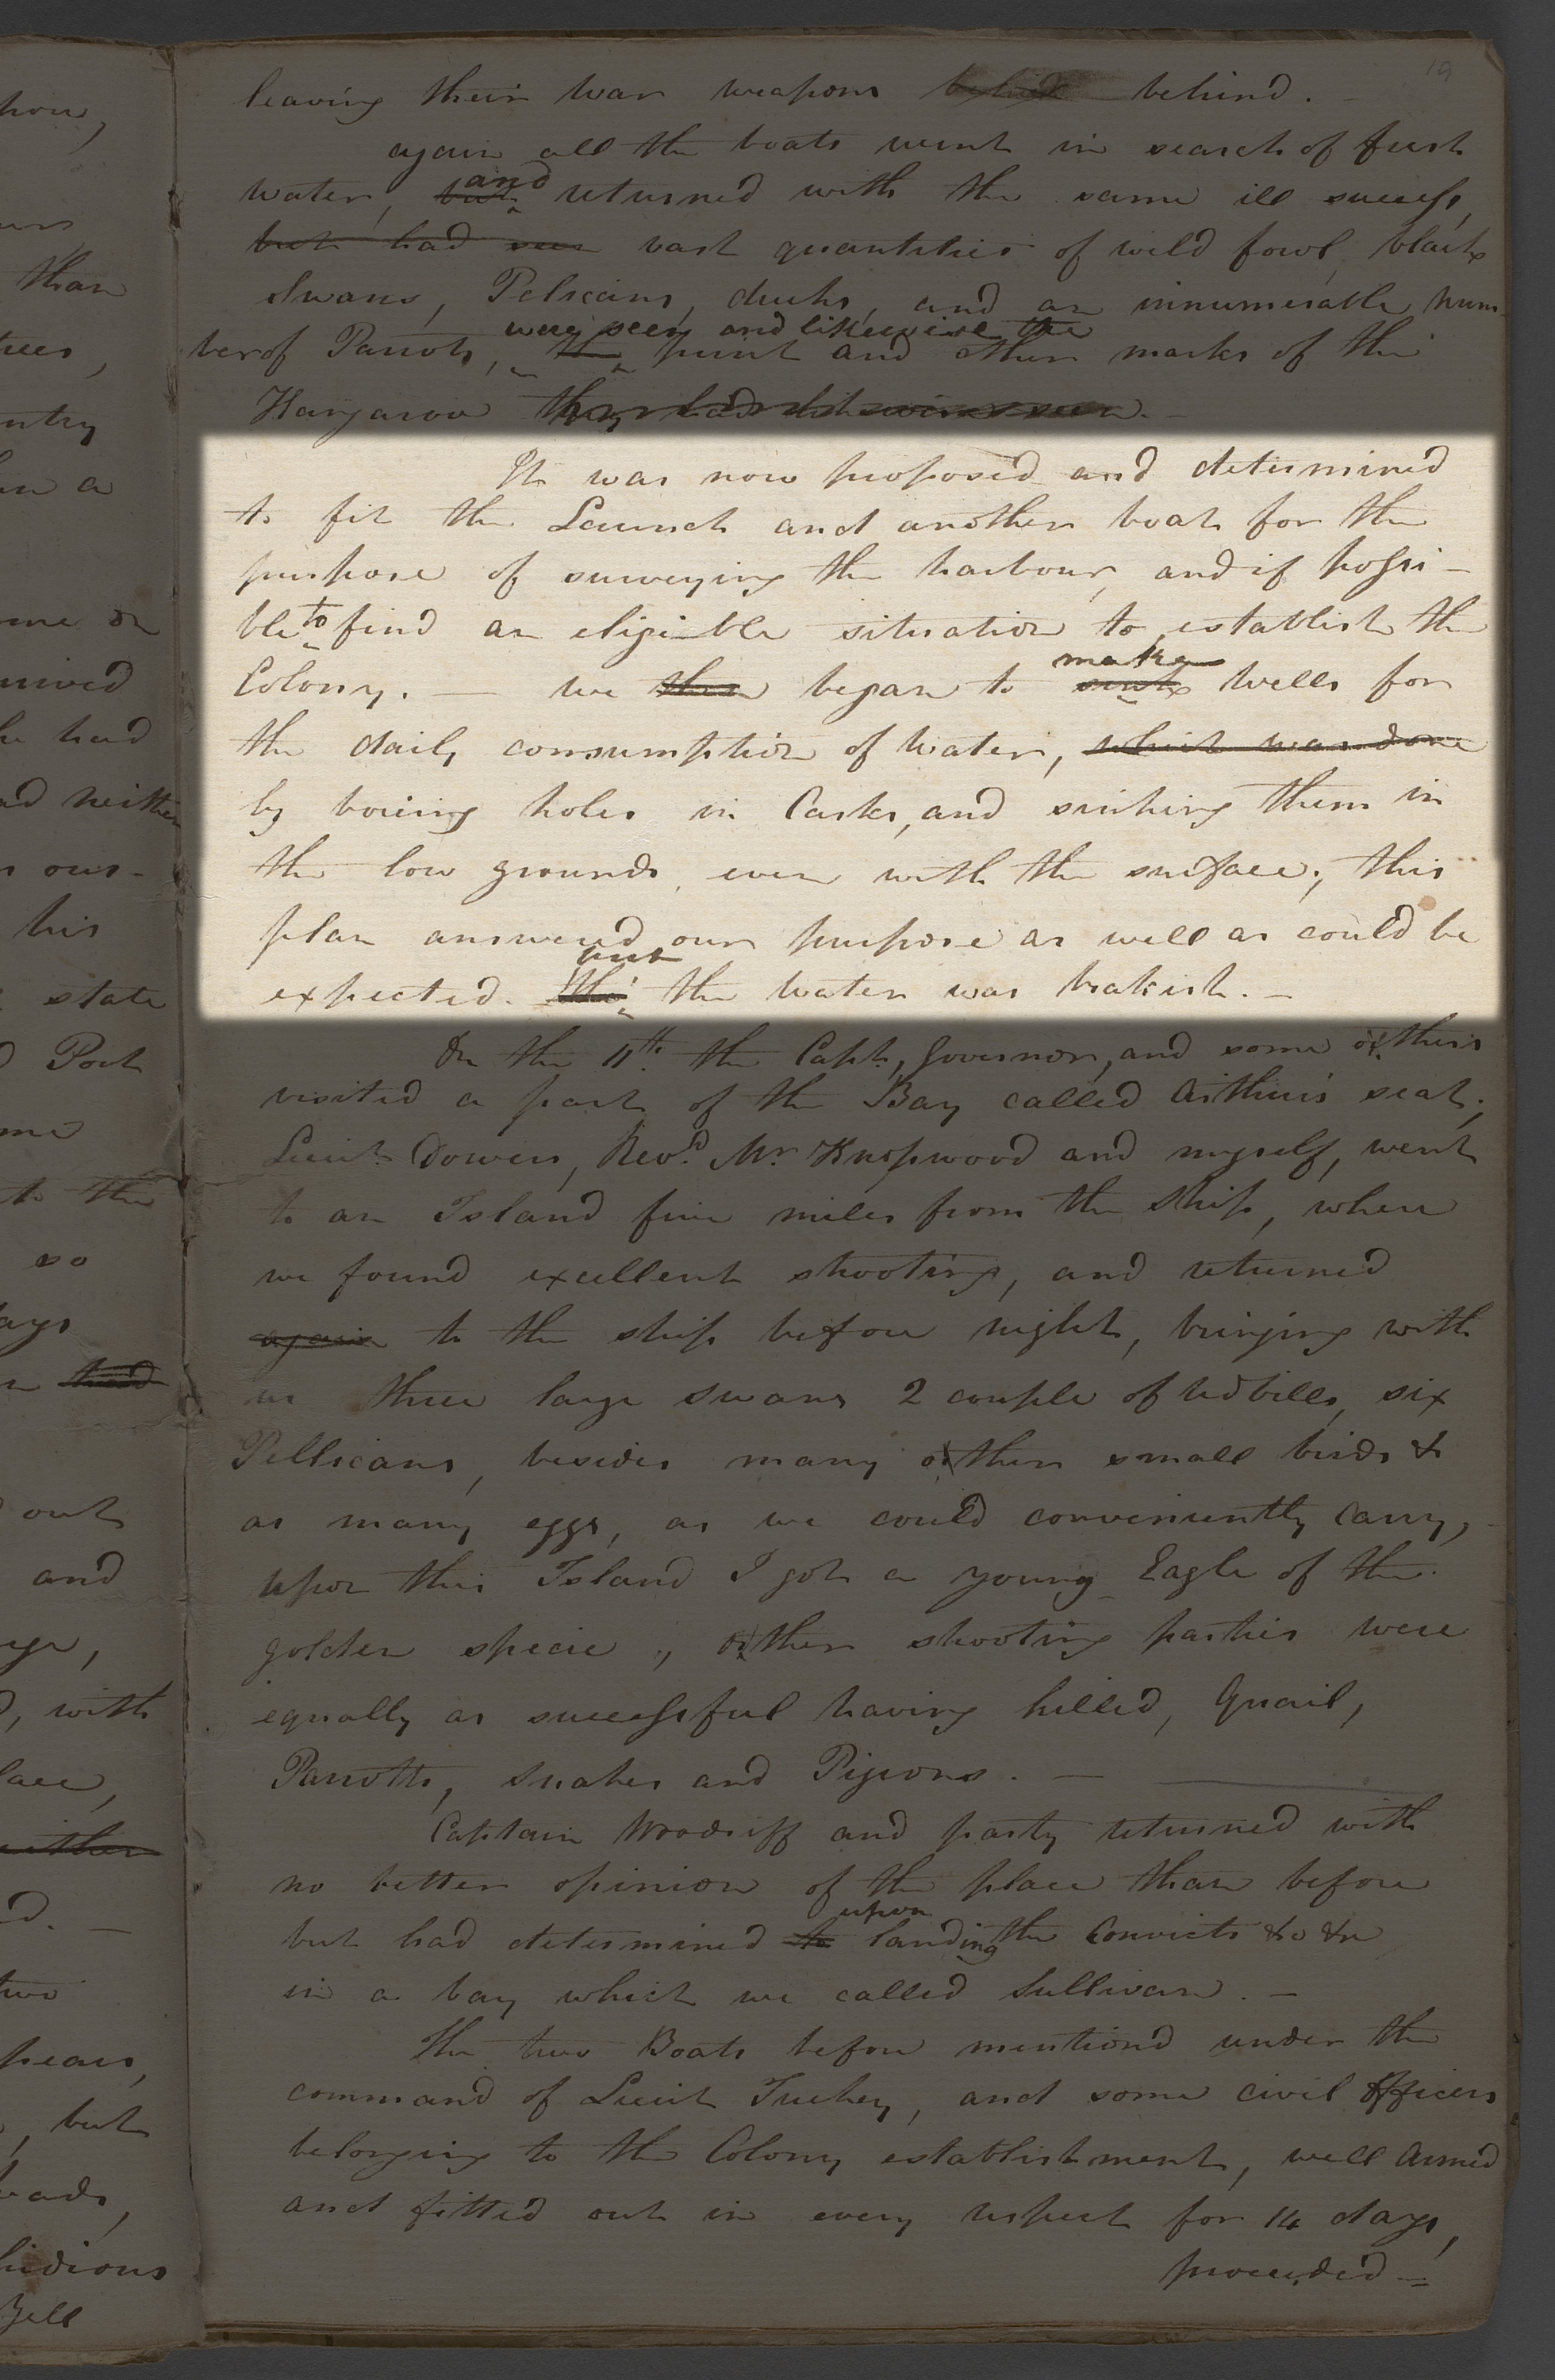 19
leaving their war weapons behind behind. -
again all the boats went in search of fresh
water, but and returned with the same ill success,
but had seen vast quantities of wild fowl, black
Swans, Pelicans, ducks, and an innumerable num-
were seen and likewise the
ber of Parrots, the print and other marks of the
Kangaroo they had likewise seen. -
It was now proposed and determined
to fit the Launch and another boat for the
purpose of surveying the harbour, and if possi-
ble to find an eligible situation to establish the
Colony. - we then began to sink make wells for
the daily consumption of water, which was done
by boring holes in Casks, and sinking them in
the low grounds, even with the surface; this
plan answered our purpose as well as could be
expected. tho' but the water was brakish. -
On the 11th. the Capt., Governor, and some others
visited a part of the Bay called Arthur's seat;
Lieut. Dowers, Revd. Mr. Knopwood and myself, went
to an Island five miles from the Ship, where
we found excellent shooting, and returned
again to the ship before night, bringing with
us three large swans 2 couple of redbills, six
Pellicans, besides many other small birds &
as many eggs, as we could conveniently carry,
upon this Island I got a young Eagle of the
golden specie; other shooting parties were
equally as successful having killed, Quail,
Parrotts, snakes and Pigeons. -
Captain Woodriff and party returned with
no better opinion of the place than before
but had determined to upon landing the Convicts &c &c
in a bay which we called Sullivan. -
The two Boats before mention'd under the
command of Lieut Tuckey, and some civil officers
belonging to the Colony establishment, well armed
and fitted out in every respect for 14 days,
proceeded -
than
trees,
entry
in a
me or
he had
ad neither
s our-
his
state
Port
me
to the
so
days
had
out
and
, with
lace,
either
two
pears,
, but
Bell